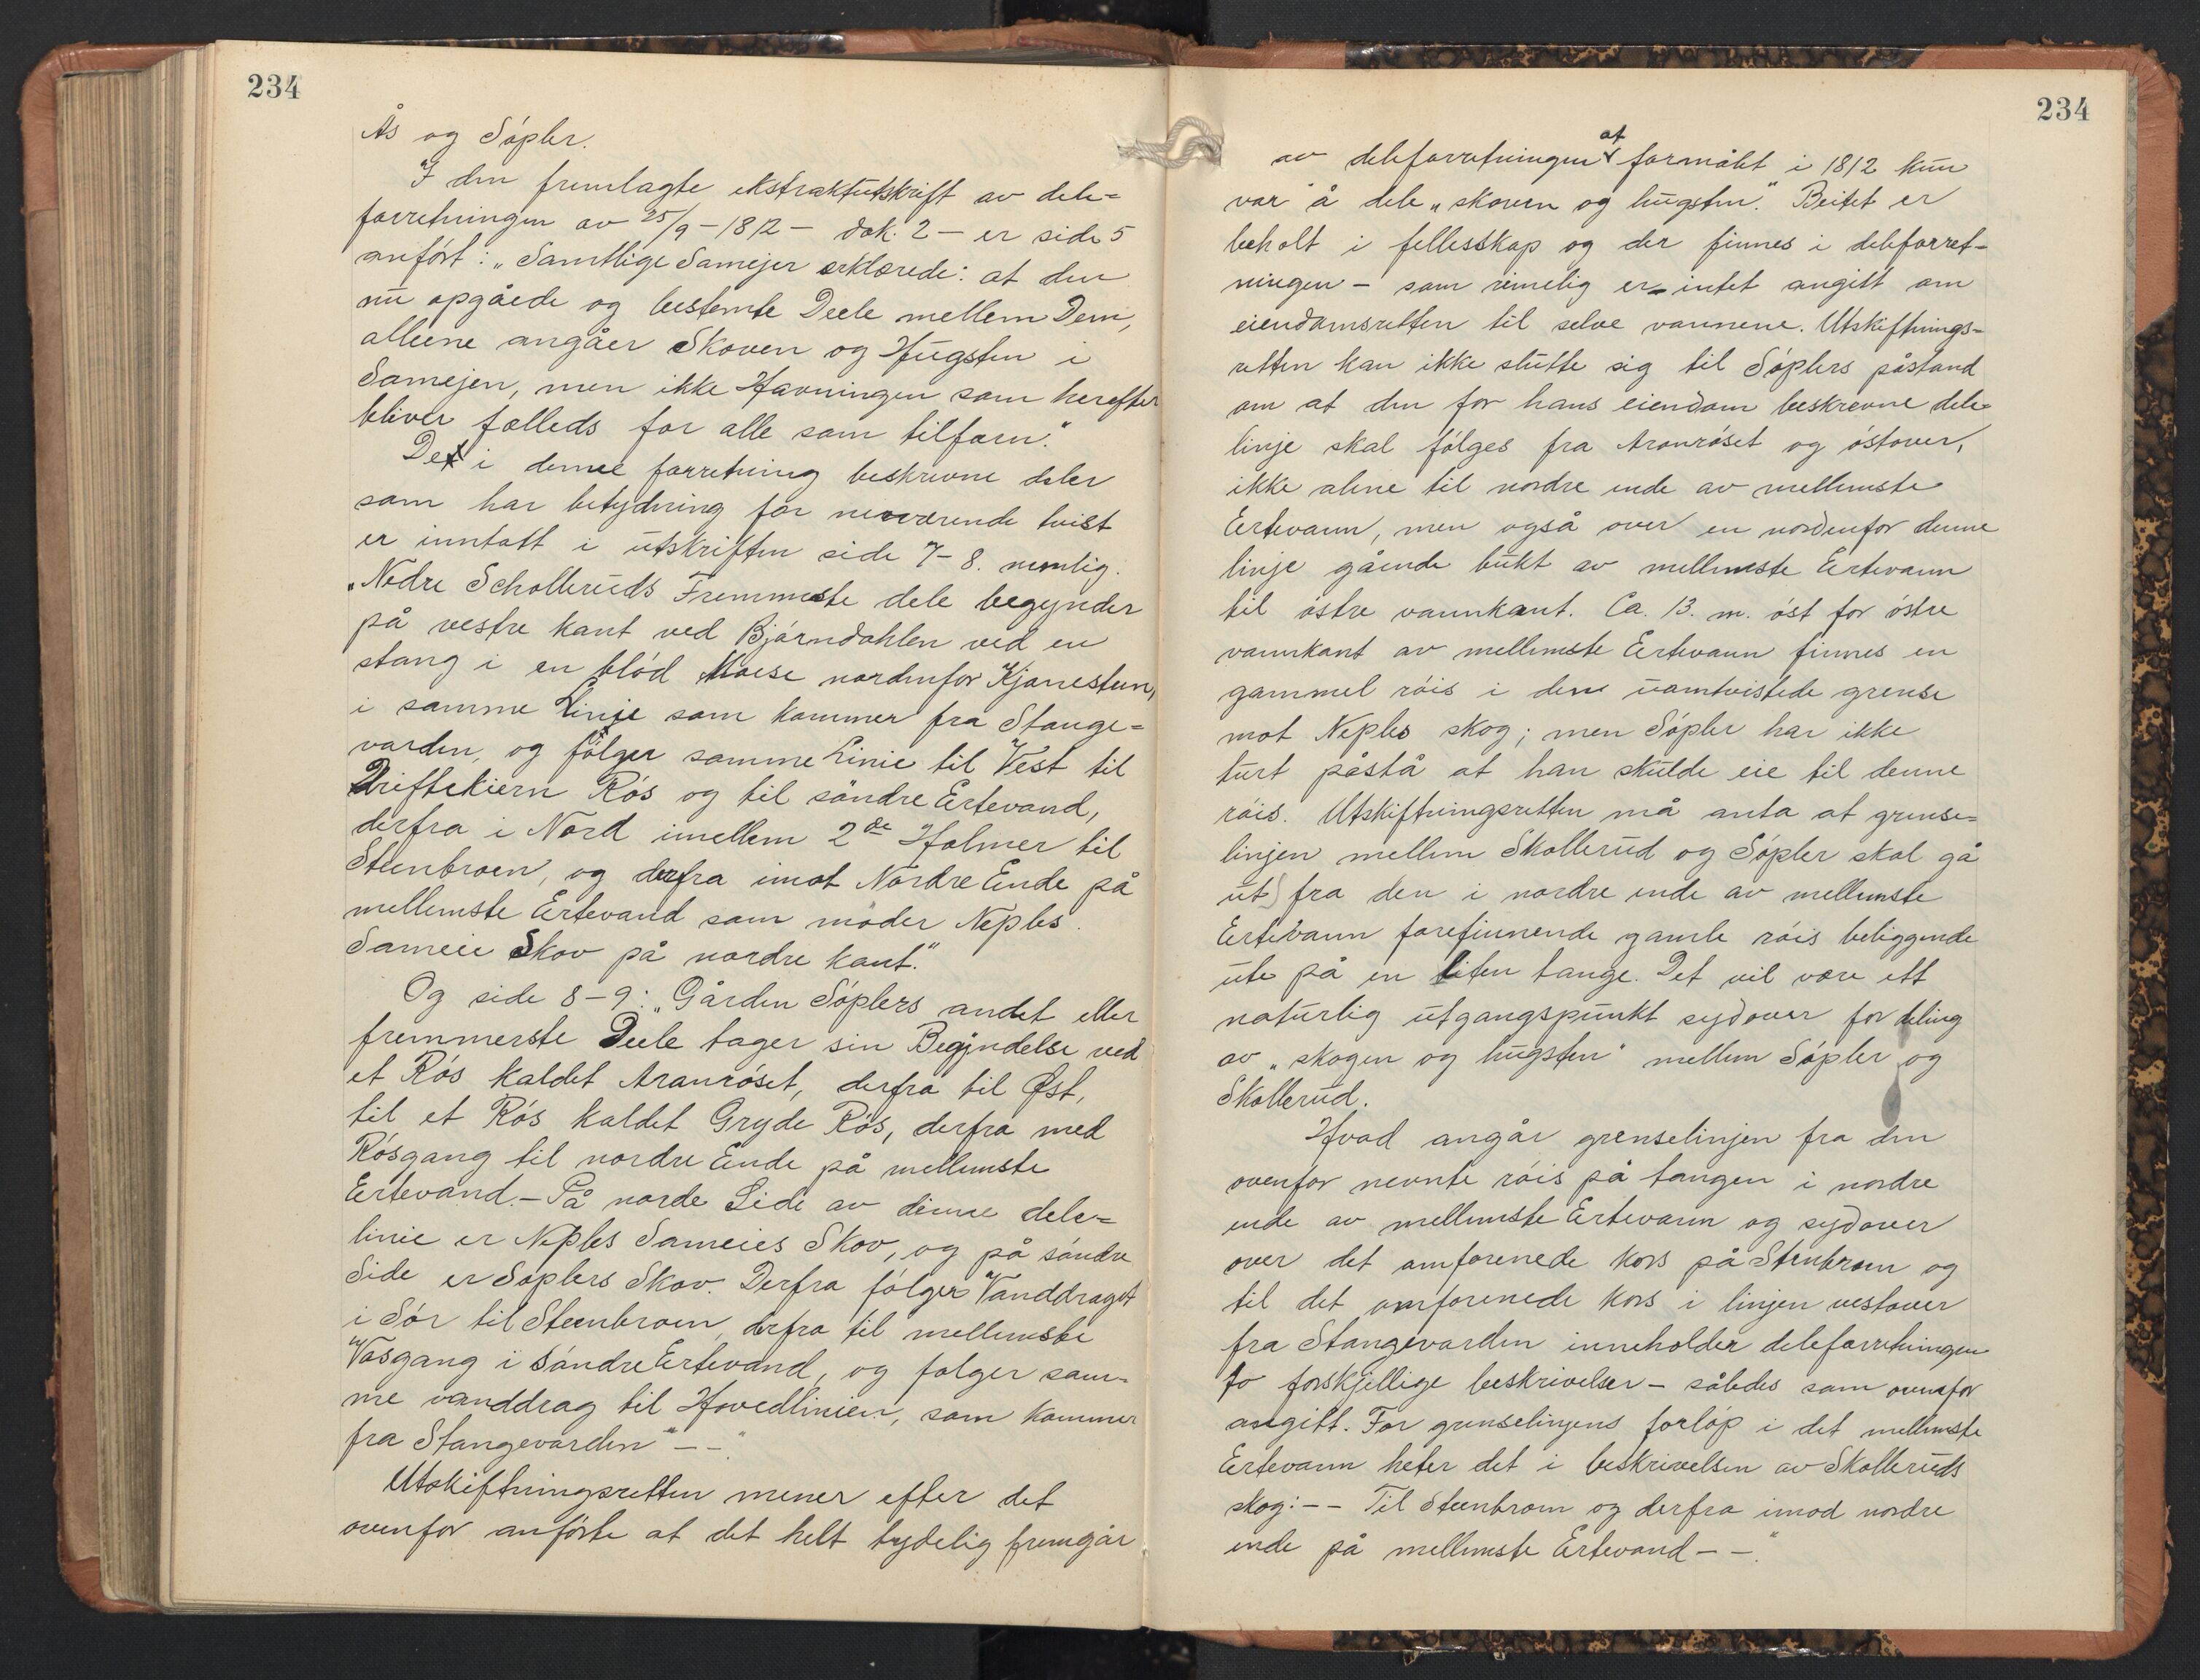 234
Ås og Söpler.
I den fremlagte ekstraktutskrift av dele=
forretningen av 25/9-1812 - dok. 2 - er side 5
anfört: „Samtlige Samejer erklærede: at den
nu opgåede og bestemte Deele mellem Dem,
alleene angåer Skoven og Hugsten i
Samejen, men ikke Havningen som herefter
bliver fælleds for alle som tilforn."
De i denne forretning beskrevne deler
som har betydning for nærværende tvist
er inntatt i utskriften side 7-8. nemlig:
„Nedre Schölleruds Fremmeste dele begynder
på vestre kant ved Bjørndahlen ved en
stang i en blöd Maese nordenfor Kjønesteen,
i samme Linje som kommer fra Stange=
varden, og følger samme Linie til Vest til
Driftekiern Rös og til söndre Ertevand,
derfra i Nord imellem 2de Holmer til
Steenbroen, og derfra imot Nordre Ende på
mellemste Ertevand som möder Neples
Sameie Skov på nordre kant."
Og side 8-9: „Gården Söplers andet eller
fremmerste Deele tager sin Begjndelse ved
et Rös kaldet Aranröset, derfra til Øst,
til et Rös kaldet Gryde Rös, derfra med
Rösgang til nordre Ende på mellemste
Ertevand. - På norde Side av denne dele=
linie er Neples Sameies Skov, og på söndre
Side er Söplers Skov. Derfra fölger Vanddraget
i Sör til Steenbroen, derfra til mellemste
Vasgang i Söndre Ertevand, og folger sam-
me vanddrag til Hovedlinien, som kommer
fra Stangevarden" - - "
Utskiftningsretten mener efter det
ovenfor anförte at det helt tydelig fremgår
234
av deleforretningen at formålet i 1812 kun
var å dele „skoven og hugsten." Beitet er
beholt i fellesskap og der finnes i deleforret-
ningen - som rimelig er - intet angitt om
eiendomsretten til selve vannene. Utskiftnings-
retten kan ikke slutte sig til Söplers påstand
om at den for hans eiendom beskrevne dele=
linje skal fölges fra Aranröset og östover,
ikke alene til nordre ende av mellemste
Ertevann, men også over en nordenfor denne
linje gående bukt av mellemste Ertevann
til östre vannkant. Ca. 13. m. öst for östre
vannkant av mellemste Ertevann finnes en
gammel röis i den uomtvistede grense
mot Neples skog; men Söpler har ikke
turt påstå at han skulde eie til denne
röis. Utskiftningsretten må anta at grense=
linjen mellem Skollerud og Söpler skal gå
ut fra den i nordre ende av mellemste
Ertevann forefinnende gamle röis beliggende
ute på en liten tange. Det vil være ett
naturlig utgangspunkt sydover for deling
av „skogen og hugsten" mellem Söpler og
Skollerud.
Hvad angår grenselinjen fra den
ovenfor nevnte röis på tangen i nordre
ende av mellemste Ertevann og sydover
over det omforenede kors på Stenbroen og
til det omforenede kors i linjen vestover
fra Stangevarden inneholder deleforretningen
to forskjellige beskrivelser - således som ovenfor
angitt. For grenselinjens forlöp i det mellemste
Ertevann heter det i beskrivelsen av Skolleruds
skog: - - Til Steenbroen og derfra imod nordre
ende på mellemste Ertevand - - ".